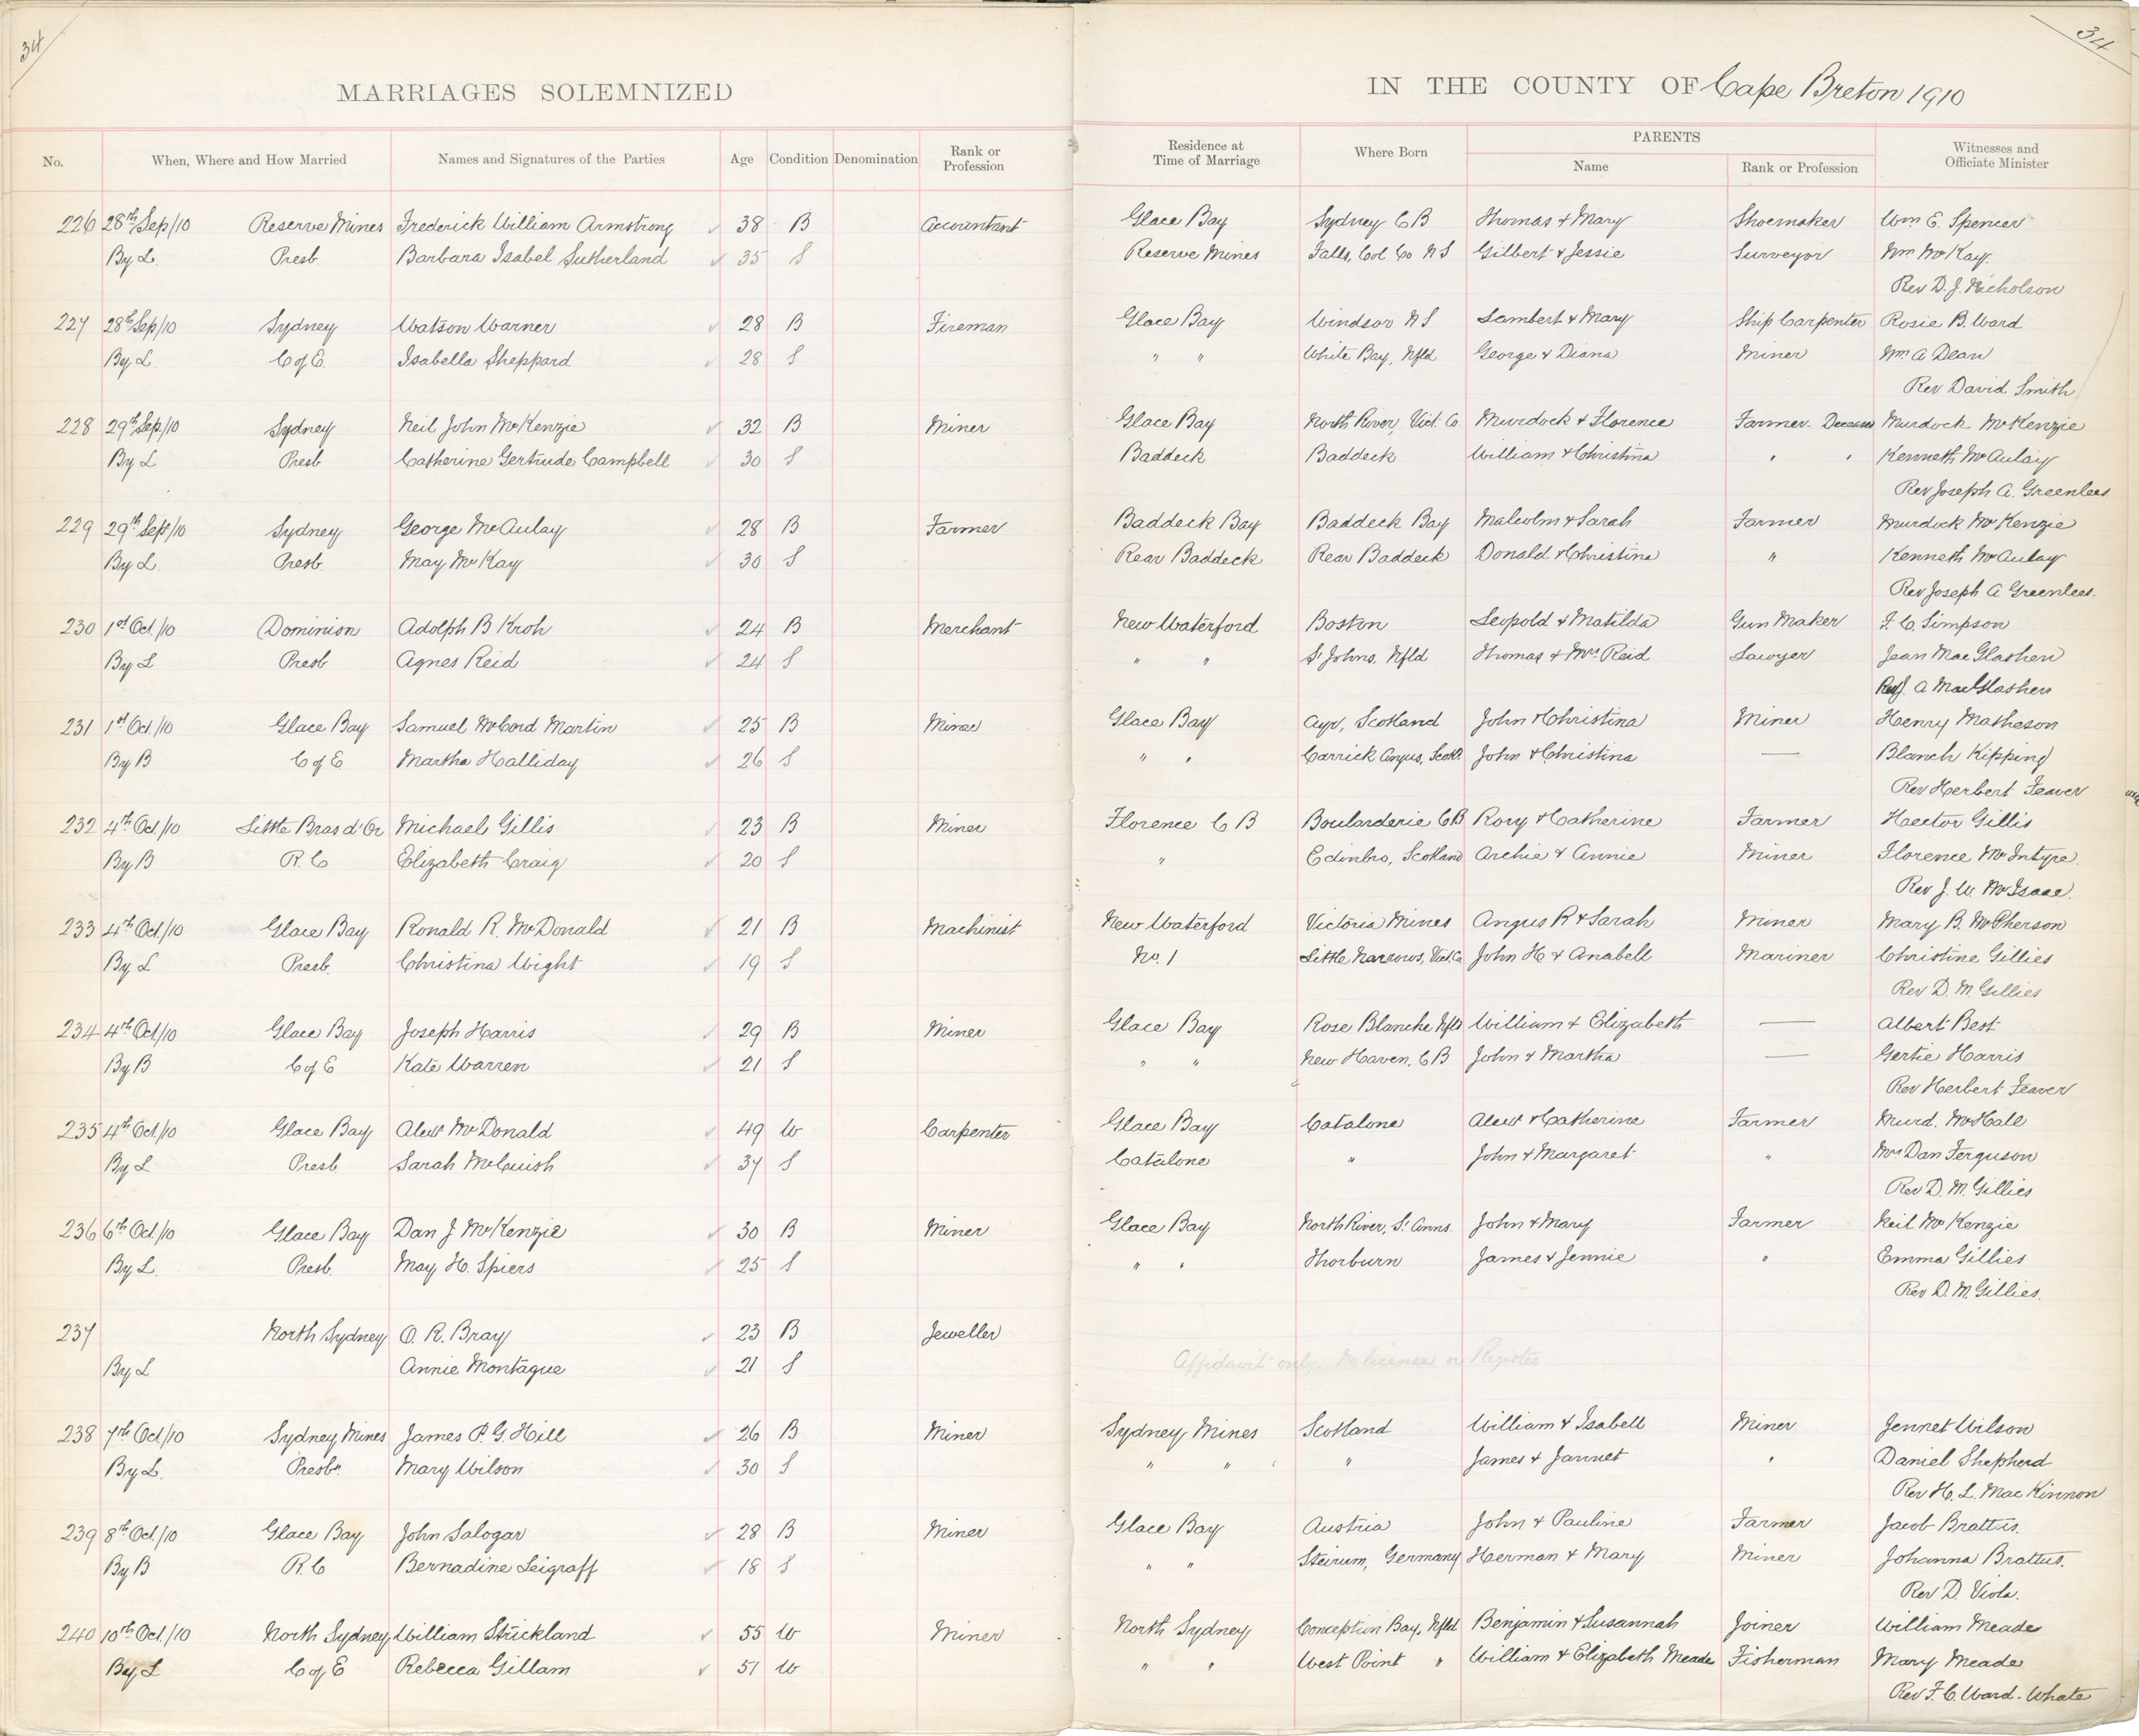 34
34
MARRIAGES SOLEMNIZED IN THE COUNTY OF Cape Breton 1910
No. When, Where and How Married Names and Signatures of the Parties Age Condition Denomination Rank or Profession Residence at Time of Marriage Where Born PARENTS Name Rank or Profession Witnesses and Officiate Minister
226 28th Sep/10 Reserve Mines Frederick William Armstrong 38 B Accountant Glace Bay Sydney C B Thomas & Mary Shoemaker Wm E. Spencer
By L. Presb. Barbara Isabel Sutherland 35 S Reserve Mines Falls, Col Co N S Gilbert & Jessie Surveyor Wm McKay.
Rev D. J. Nicholson
227 28th Sep/10 Sydney Watson Warner 28 B Fireman Glace Bay Windsor N S Lambert & Mary Ship Carpenter Rosie B. Ward
By L. C of E. Isabella Sheppard 28 S " " White Bay, Nfld George & Diana Miner Wm A Dean
Rev David Smith
228 29th Sep/10 Sydney Neil John McKenzie 32 B Miner Glace Bay North River, Vict. Co Murdock & Florence Farmer - Deceased Murdock McKenzie
By L Presb Catherine Gertrude Campbell 30 S Baddeck Baddeck William & Christina " " Kenneth McAulay
Rev Joseph A. Greenlees
229 29th Sept/10 Sydney George McAulay 28 B Farmer Baddeck Bay Baddeck Bay Malcolm & Sarah Farmer Murdock McKenzie
By L. Presb. May McKay 30 S Rear Baddeck Rear Baddeck Donald & Christina " Kenneth McAulay
Rev Joseph A Greenlees.
230 1st Oct./10 Dominion Adolph B Kroh 24 B Merchant New Waterford Boston Leopold & Matilda Gun Maker F. C. Simpson
By L Presb Agnes Reid 24 S " " St Johns, Nfld Thomas & Mrs Reid Lawyer Jean MacGlashen
Rev J. A MacGlashen
231 1st Oct./10 Glace Bay Samuel McCord Martin 25 B Miner Glace Bay Ayr, Scotland John & Christina Miner Henry Matheson
By B C of E Martha Halliday 26 S " " Carrick Angus, Scotl. John & Christina — Blanch Kipping
Rev Herbert Feaver
232 4th Oct./10 Little Bras d'Or Michael Gillis 23 B Miner Florence C B Boularderie C B Rory & Catherine Farmer Hector Gillis
By B R. C Elizabeth Craig 20 S " Edinbro, Scotland Archie & Annie Miner Florence McIntyre.
Rev J. W. McIsaac.
233 4th Oct./10 Glace Bay Ronald R. McDonald 21 B Machinist New Waterford Victoria Mines Angus R & Sarah Miner Mary B. McPherson
By L Presb. Christina Wight 19 S No. 1 Little Narrows, Vict. Co John H & Anabell Mariner Christine Gillies
Rev D. M. Gillies
234 4th Oct/10 Glace Bay Joseph Harris 29 B Miner Glace Bay Rose Blanche Nfld William & Elizabeth — Albert Best
By B C of E Kate Warren 21 S " " New Haven, C B John & Martha — Gertie Harris
Rev Herbert Feaver
235 4th Oct/10 Glace Bay Alexr McDonald 49 W Carpenter Glace Bay Catalone Alexr & Catherine Farmer Murd. McHale
By L Presb Sarah McCuish 37 S Catalone " John & Margaret " Mrs Dan Ferguson
Rev D. M. Gillies
236 6th Oct./10 Glace Bay Dan J McKenzie 30 B Miner Glace Bay North River, St Anns. John & Mary Farmer Neil McKenzie
By L. Presb. May H. Spiers 25 S " " Thorburn James & Jennie " Emma Gillies
Rev D. M. Gillies.
237 North Sydney O. R. Bray 23 B Jeweller
By L Annie Montague 21 S Affidavit only. No licence or Register
238 7th Oct/10 Sydney Mines James P. G. Hill 26 B Miner Sydney Mines Scotland William & Isabell Miner Jennet Wilson
By L. Presbn Mary Wilson 30 S " " " James & Jannet " Daniel Shepherd
Rev H. L. MacKinnon
239 8th Oct./10 Glace Bay John Salogar 28 B Miner Glace Bay Austria John & Pauline Farmer Jacob Brattus.
By B R. C Bernadine Leigraff 18 S " " Steirum, Germany Herman & Mary Miner Johanna Brattus.
Rev D. Viola.
240 10th Oct./10 North Sydney William Strickland 55 W Miner North Sydney Conception Bay, Nfld Benjamin & Susannah Joiner William Meade
By L C of E Rebecca Gillam 51 W " " West Point " William & Elizabeth Meade Fisherman Mary Meade
Rev F. C. Ward-Whate